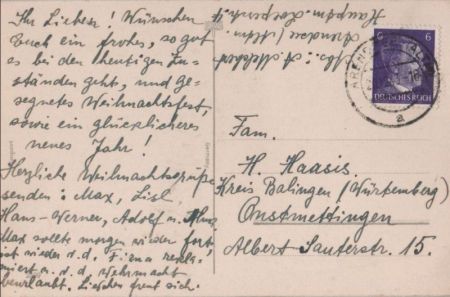 Ihr Lieben! Wünschen
Euch ein frohes, so gut
es bei den heutigen Zu-
ständen geht, und ge-
segnetes Weihnachtsfest,
sowie ein glücklicheres
neues Jahr!
Herzliche Weihnachtsgrüße
senden: Max, Lisl,
Hans-Werner, Adolf u.
Max sollte morgen wieder fort,
ist wieder v. d. Firma rekla-
miert u. v. d. Wehrmacht
beurlaubt. Lieschen freut sich.
Abs.: A.
Arendsee /
Hauptm.
ARENDSEE
a
6 6
DEUTSCHES REICH
Fam.
H. Haasis
Kreis Balingen (Württemberg)
Onstmettingen
Albert Sauterstr. 15.